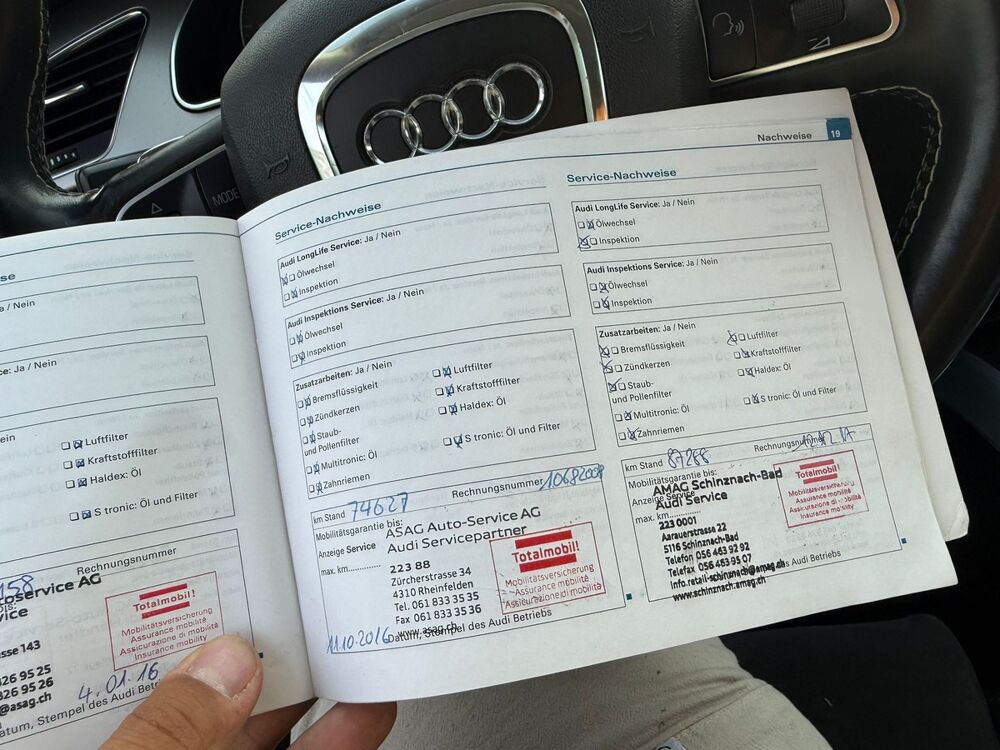 MODE
se
/ Nein
ce: Ja / Nein
Nein
Luftfilter
Kraftstofffilter
Haldex: Öl
S tronic: Öl und Filter
Rechnungsnummer
158
oservice AG
vice
sse 143
326 95 25
326 95 26
@asag.ch
Totalmobil!
Mobilitätsversicherung
Assurance mobilité
Assicurazione di mobilità
Insurance mobility
4.01.16
atum, Stempel des Audi Betri
Service-Nachweise
Audi LongLife Service: Ja / Nein
Ölwechsel
Inspektion
Audi Inspektions Service: Ja / Nein
Ölwechsel
Inspektion
Zusatzarbeiten: Ja / Nein
Bremsflüssigkeit
Zündkerzen
Staub-
und Pollenfilter
Multitronic: Öl
Zahnriemen
Luftfilter
Kraftstofffilter
Haldex: Öl
S tronic: Öl und Filter
km Stand 74627
Rechnungsnummer 10682008
Mobilitätsgarantie bis:
Anzeige Service
max. km
ASAG Auto-Service AG
Audi Servicepartner
223 88
Zürcherstrasse 34
4310 Rheinfelden
Tel. 061 833 35 35
Fax 061 833 35 36
www.asag.ch
Totalmobil!
Mobilitätsversicherung
Assurance mobilité
Assicurazione di mobilità
11.10.2016
Datum, Stempel des Audi Betriebs
Nachweise 19
Service-Nachweise
Audi LongLife Service: Ja / Nein
Ölwechsel
Inspektion
Audi Inspektions Service: Ja / Nein
Ölwechsel
Inspektion
Zusatzarbeiten: Ja / Nein
Bremsflüssigkeit
Zündkerzen
Staub-
und Pollenfilter
Multitronic: Öl
Zahnriemen
Luftfilter
Kraftstofffilter
Haldex: Öl
S tronic: Öl und Filter
km Stand 87288
Rechnungsnummer
Mobilitätsgarantie bis:
Anzeige Service
max. km
AMAG Schinznach-Bad
Audi Service
223 0001
Aarauerstrasse 22
5116 Schinznach-Bad
Telefon 056 463 92 92
Telefax 056 463 95 07
Info.retail-schinznach@amag.ch
www.schinznach.amag.ch
Totalmobil!
Mobilitätsversicherung
Assurance mobilité
Assicurazione di mobilità
Insurance mobility
des Audi Betriebs